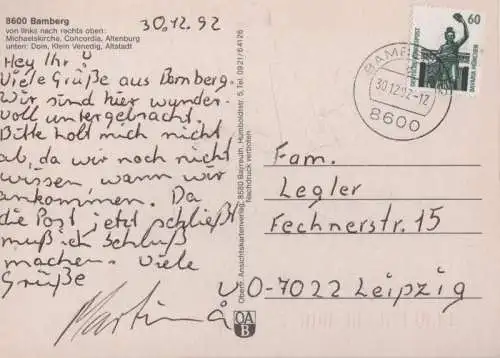 8600 Bamberg
von links nach rechts oben:
Michaelskirche, Concordia, Altenburg
unten: Dom, Klein Venedig, Altstadt
30.12.92
Hey Ihr!
Viele Grüße aus Bamberg.
Wir sind hier wunder-
voll untergebracht.
Bitte holt mich nicht
ab, da wir noch nicht
wissen, wann wir
ankommen. Da
die Post jetzt schließt
muß ich Schluß
machen. Viele
Grüße
Martin
Oberfr. Ansichtskartenverlag, 8580 Bayreuth, Humboldtstr. 6, Tel. 0921/64126
Nachdruck verboten
OA
B
60
DEUTSCHE BUNDESPOST
BAVARIA MÜNCHEN
30.12.92-12
8600
Fam.
Legler
Fechnerstr. 15
O-7022 Leipzig